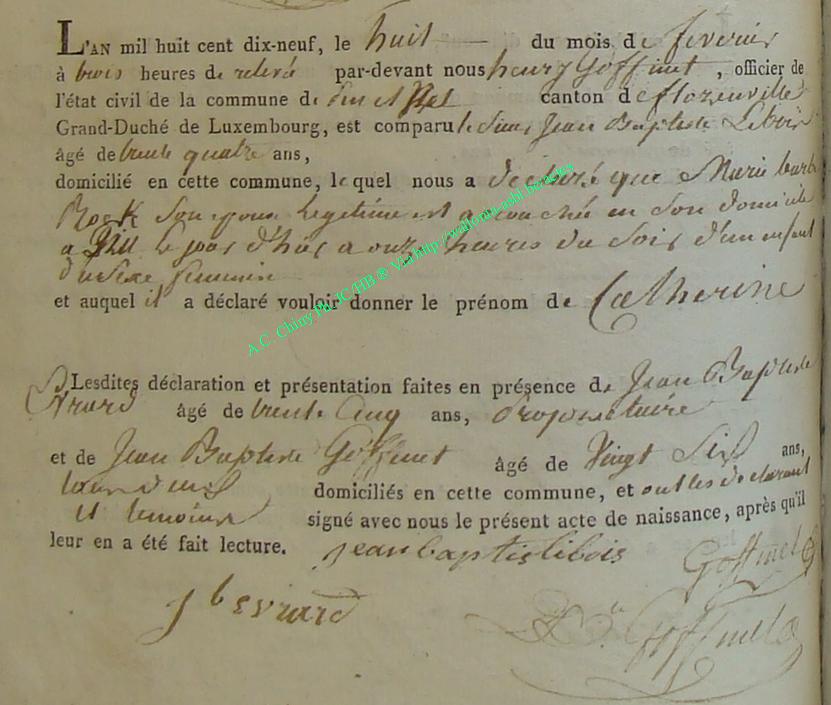 L'AN mil huit cent dix-neuf, le huit du mois de fevrier
à trois heures de relevé par-devant nous henry Goffinet, officier de
l'état civil de la commune de canton de florenville
Grand-Duché de Luxembourg, est comparu le Sieur Jean Baptiste Libois
âgé de trente quatre ans,
domicilié en cette commune, lequel nous a declaré que Marie barbe
Rock Son epouse legitime est accouchée en son domicile
a le jour d'hier a onze heures du Soir d'un enfant
du Sexe feminin
et auquel il a déclaré vouloir donner le prénom de Catherine
A.C. Chiny Ph. JC/HB ® Via http://wallonia-asbl.be/actes
Lesdites déclaration et présentation faites en présence de Jean Baptiste
Evrard âgé de trente Cinq ans, propriétaire
et de Jean Baptiste Goffinet âgé de Vingt Six ans,
tous deux domiciliés en cette commune, et ont les declarant
et temoins signé avec nous le présent acte de naissance, après qu'il
leur en a été fait lecture. jean baptis libois Goffinet
J b evrard Goffinet